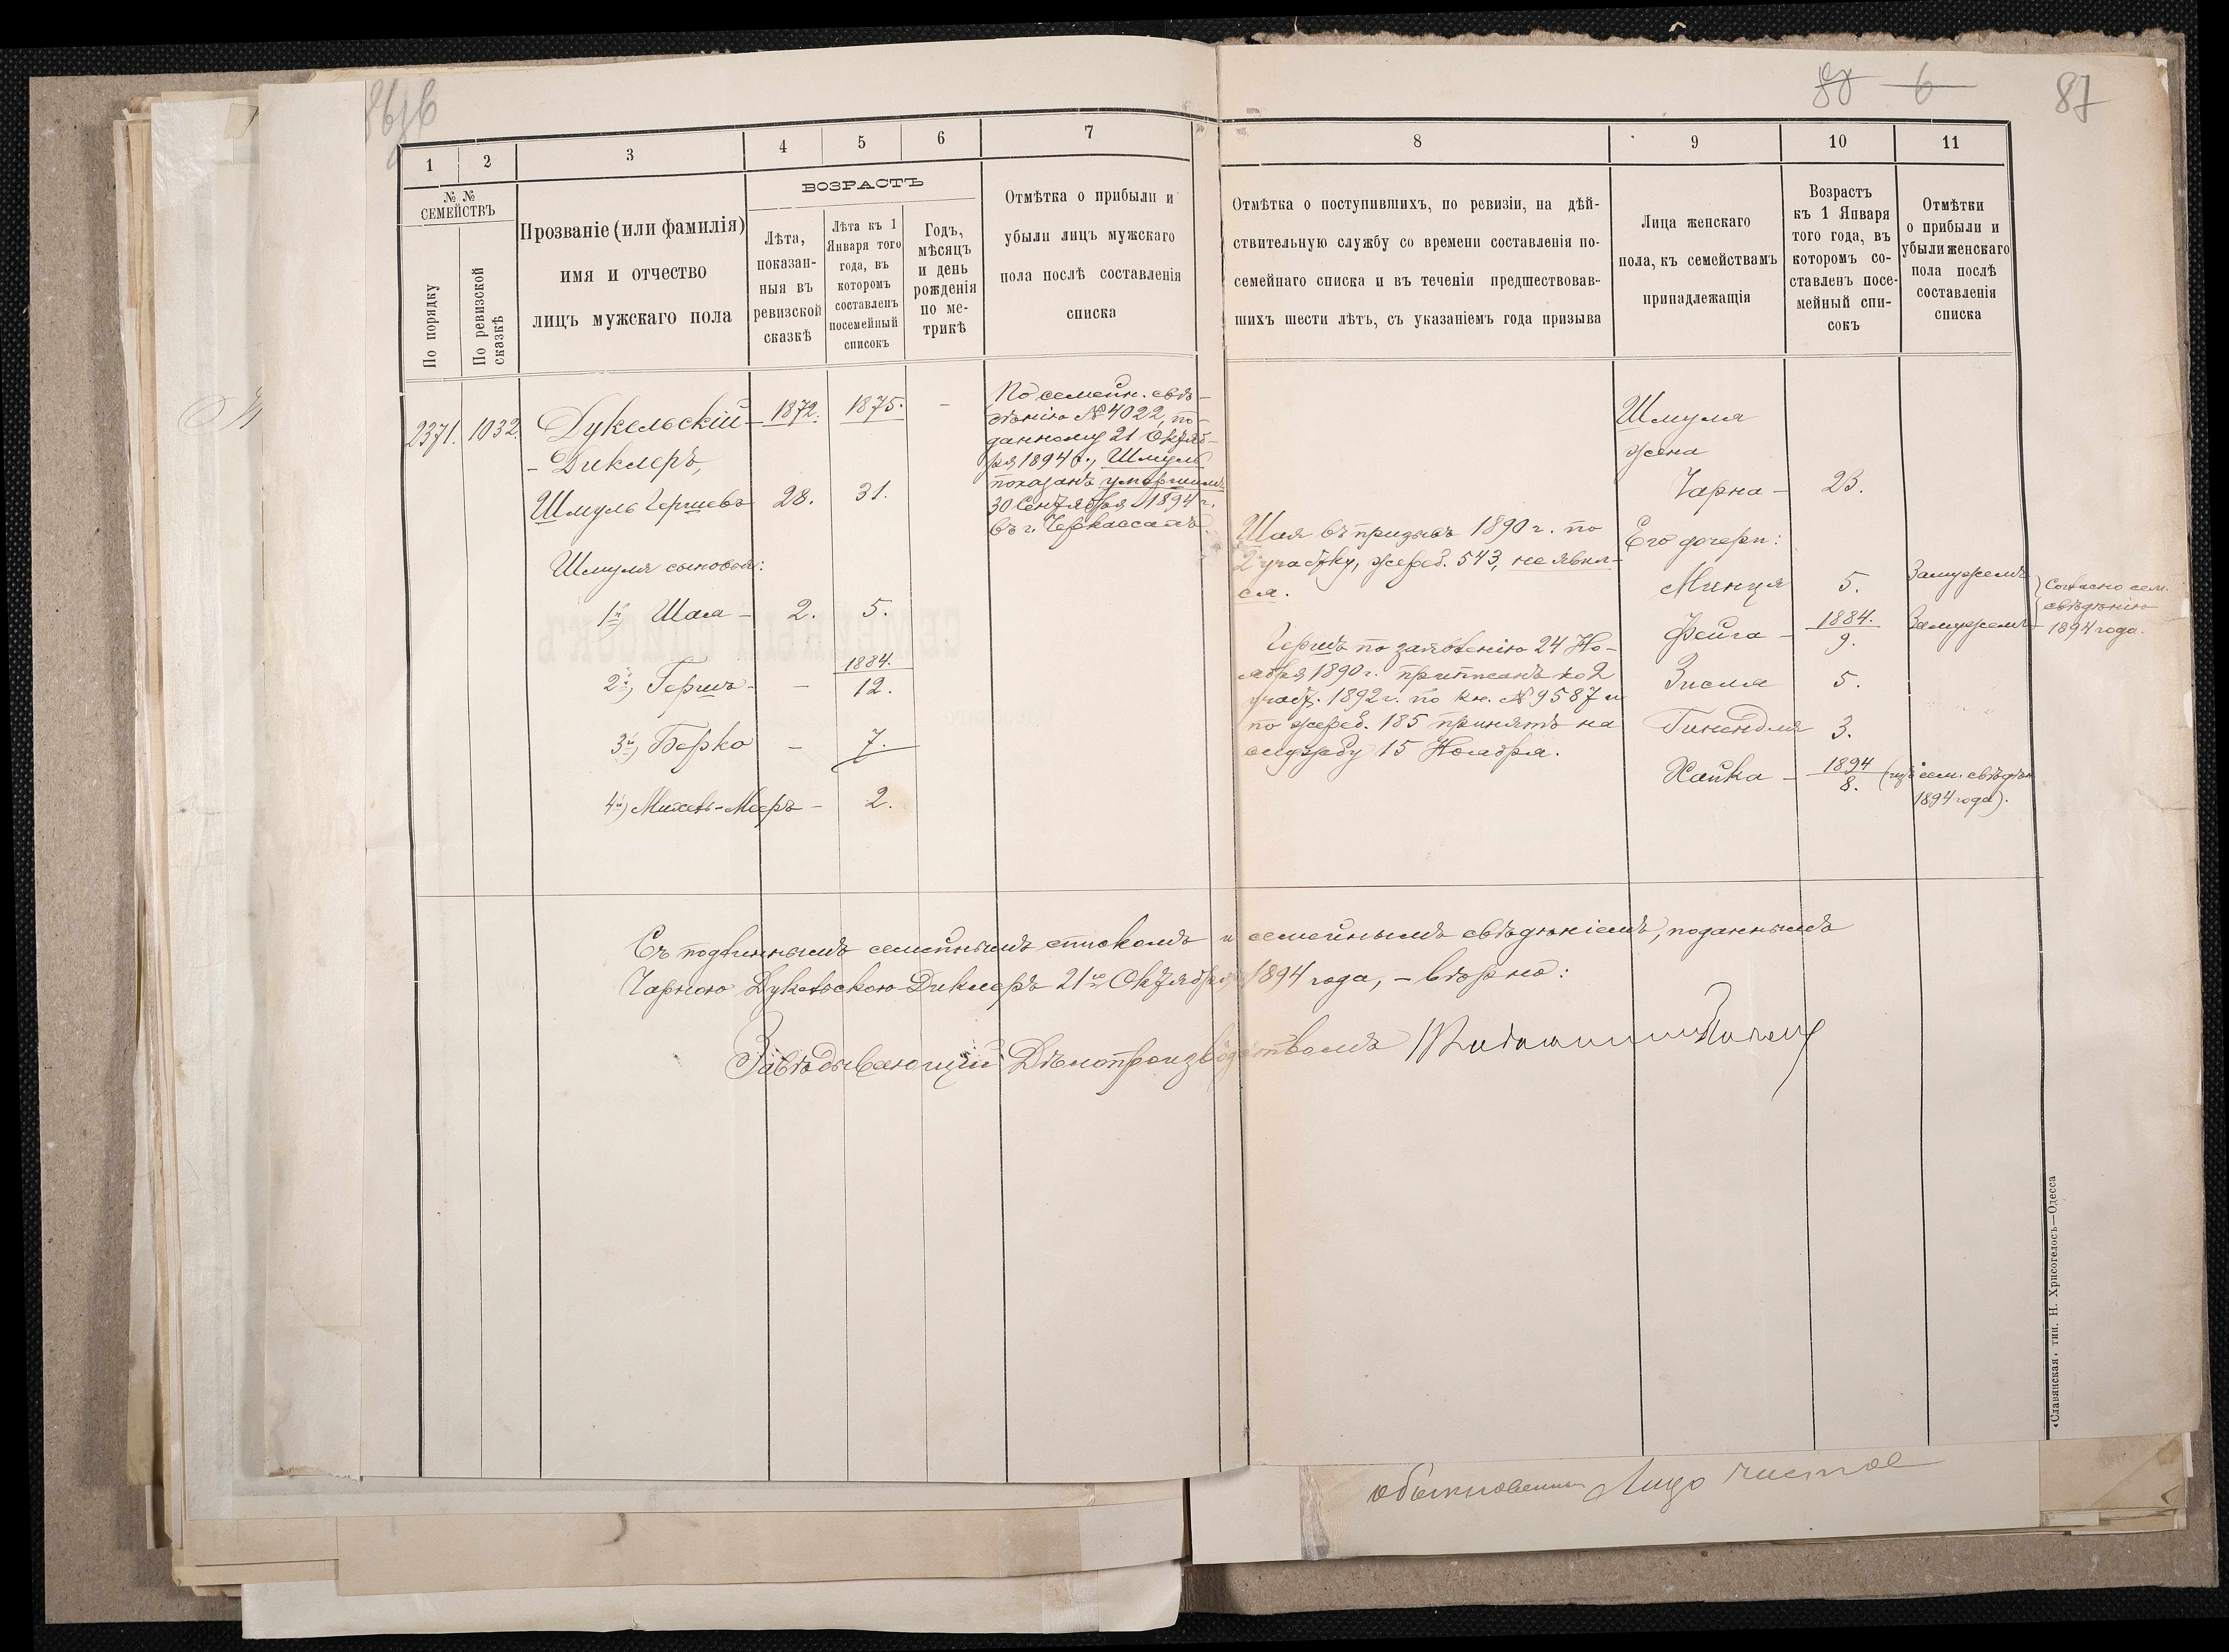 87
1
2
3
4
5
6
7
8
9
10
11
№ №
СЕМЕЙСТВЪ
По порядку
По ревизской
сказкѣ
Прозваніе (или фамилія)
имя и отчество
лицъ мужскаго пола
ВОЗРАСТЪ
Лѣта,
показан-
ныя въ
ревизской
сказкѣ
Лѣта къ 1
Января того
года, въ
которомъ
составленъ
посемейный
списокъ
Годъ,
мѣсяцъ
и день
рожденія
по ме-
трикѣ
Отмѣтка о прибыли и
убыли лицъ мужскаго
пола послѣ составленія
списка
Отмѣтка о поступившихъ, по ревизіи, на дѣй-
ствительную службу со времени составленія по-
семейнаго списка и въ теченіи предшествовав-
шихъ шести лѣтъ, съ указаніемъ года призыва
Лица женскаго
пола, къ семействамъ
принадлежащія
Возрастъ
къ 1 Января
того года, въ
которомъ со-
ставленъ посе-
мейный спи-
сокъ
Отмѣтки
о прибыли и
убыли женскаго
пола послѣ
составленія
списка
2371. 1032. Дукельскій- 1872. 1875. -
-Диклеръ,
Шмуль Гершевъ 28. 31.
Шмуля сыновья:
1й) Шая - 2. 5.
1884.
2й) Гершъ - - 12.
3й) Берко - 7.
4й) Михель-Мееръ - 2.
По семейн. свѣ-
дѣнію № 4022, по-
данному 21 Октяб-
ря 1894 г., Шмуль
показанъ умершимъ
30 Сентября 1894 г.
въ г. Черкассахъ.
Шая въ призывъ 1890 г. по
2 участку, жереб. 543, не явил-
ся.
Гершъ по заявленію 24 Но-
ября 1890 г. приписанъ ко 2
участ. 1892 г. по кн. № 9587 и
по жереб. 185 принятъ на
службу 15 Ноября.
Шмуля
жена
Чарна - 23.
Его дочери:
Минця 5. Замужемъ
Фейга - 1884. Замужемъ
9.
Зисля 5.
Гинендля 3.
Хайка - 1894 (изъ сем. свѣдѣн.
8. 1894 года).
Согласно сем.
свѣдѣнію
1894 года.
Съ подлиннымъ семейнымъ спискомъ и семейнымъ свѣдѣніемъ, поданнымъ
Чарною Дукельскою-Диклеръ 21го Октября 1894 года, - вѣрно:
Завѣдывающій Дѣлопроизводствомъ
«Славянская» тип. Н. Хрисогелосъ—Одесса
обыкновенны Лицо чистое